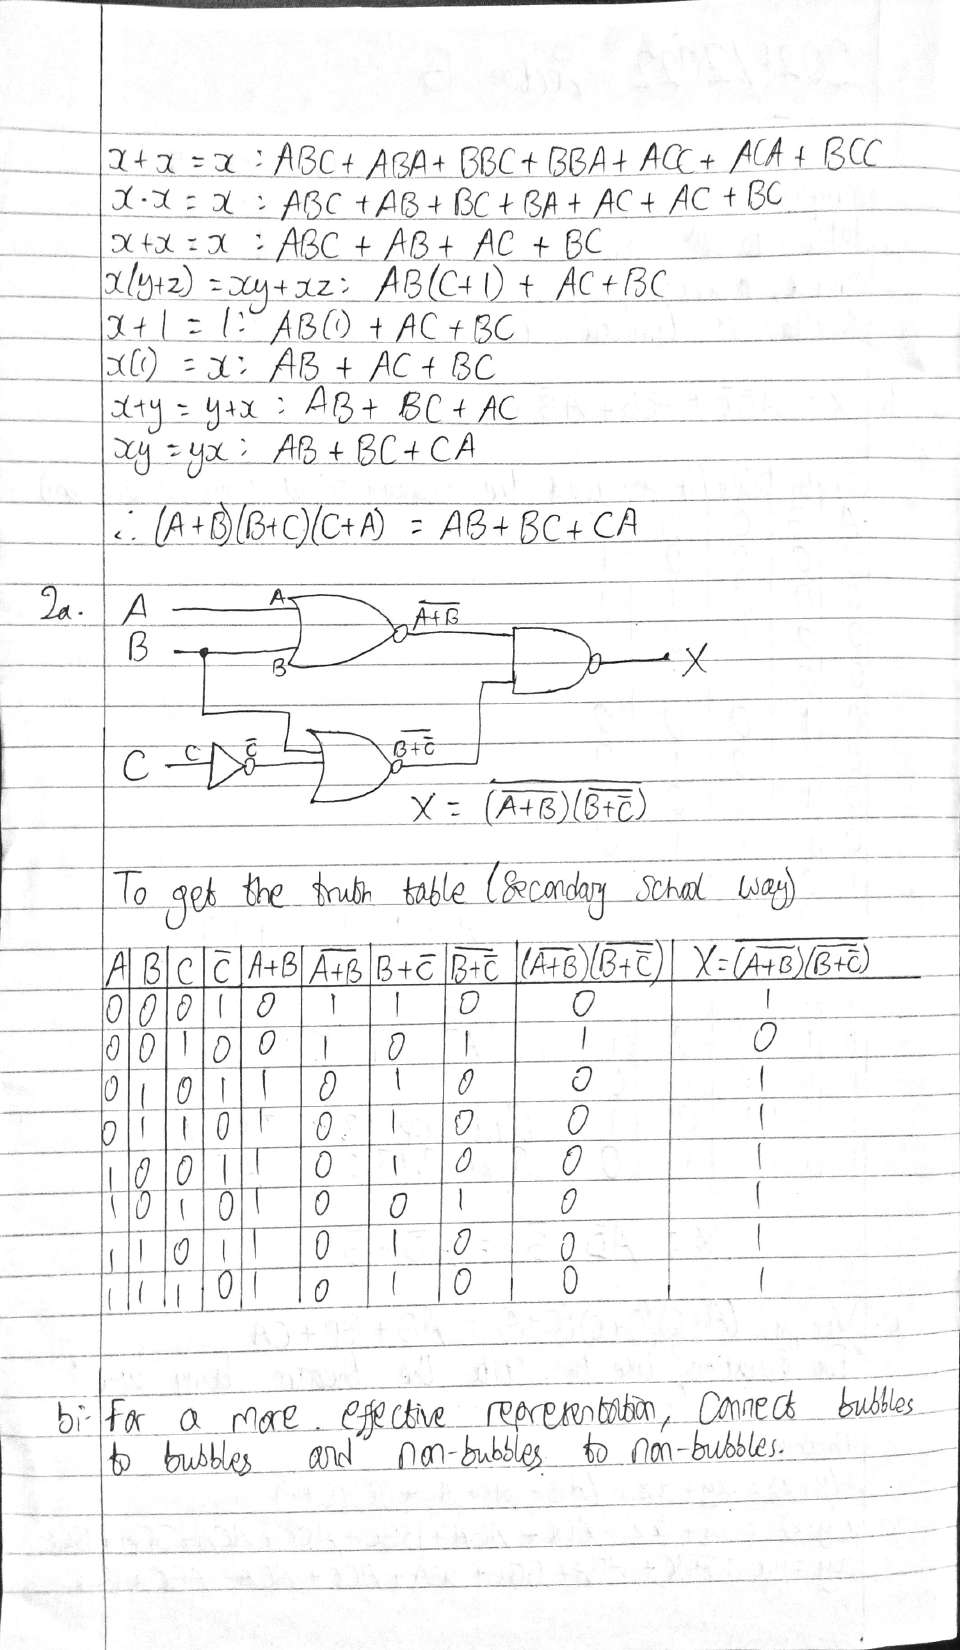 x+x = x : ABC + ABA + BBC + BBA + ACC + ACA + BCC
x·x = x : ABC + AB + BC + BA + AC + AC + BC
x+x = x : ABC + AB + AC + BC
x(y+z) = xy+xz : AB(C+1) + AC+BC
x+1 = 1 : AB(1) + AC + BC
x(1) = x : AB + AC + BC
x+y = y+x : AB + BC + AC
xy = yx : AB + BC + CA
∴ (A+B)(B+C)(C+A) = AB + BC + CA
2a.
A A A̅+̅B̅
B B X
C C C̅ B̅+̅C̿
X = \overline{(\overline{A+B})(\overline{B+\overline{C}})}
To get the truth table (Secondary School way)
A B C C̅ A+B \overline{A+B} B+C̅ \overline{B+\overline{C}} (\overline{A+B})(\overline{B+\overline{C}}) X=\overline{(\overline{A+B})(\overline{B+\overline{C}})}
0 0 0 1 0 1 1 0 0 1
0 0 1 0 0 1 0 1 1 0
0 1 0 1 1 0 1 0 0 1
0 1 1 0 1 0 1 0 0 1
1 0 0 1 1 0 1 0 0 1
1 0 1 0 1 0 0 1 0 1
1 1 0 1 1 0 1 0 0 1
1 1 1 0 1 0 1 0 0 1
bi- For a more effective representation, Connect bubbles
to bubbles and non-bubbles to non-bubbles.